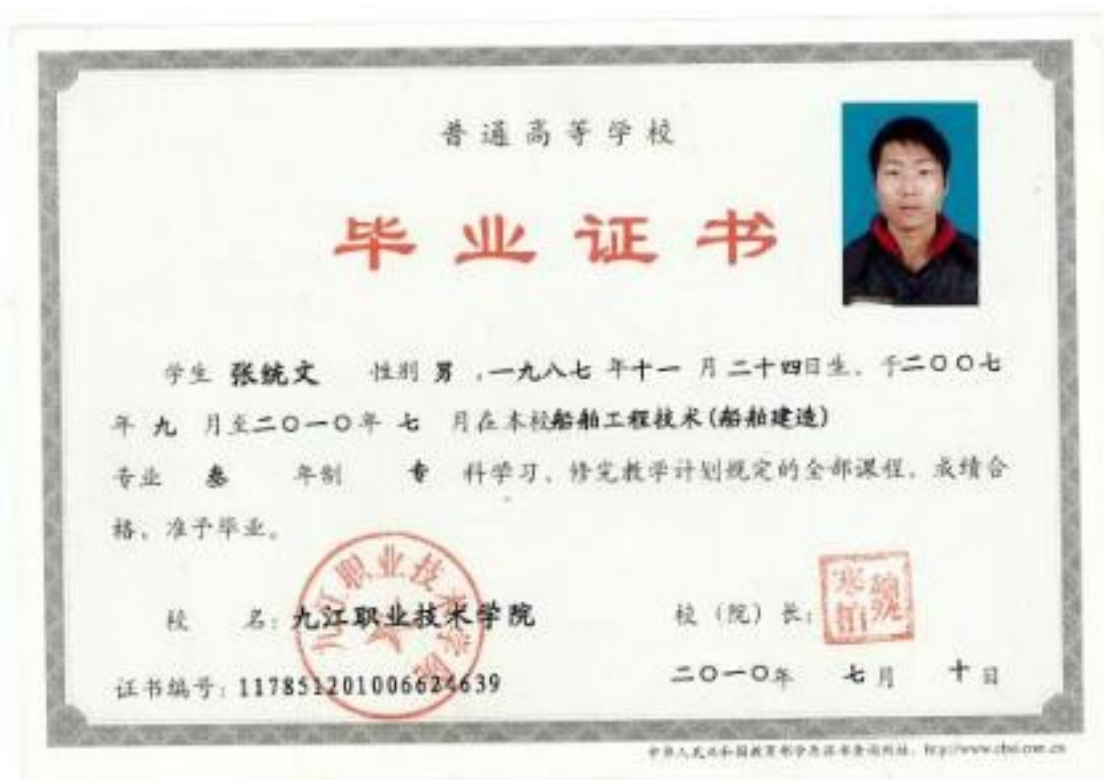 普通高等学校
毕业证书
学生 张统文 性别 男 ,一九八七 年十一 月二十四日生、于二〇〇七
年 九 月至二〇一〇年 七 月在本校船舶工程技术(船舶建造)
专业 叁 年制 专 科学习、修完教学计划规定的全部课程、成绩合
格、准予毕业。
九江职业技术学院
校 名: 九江职业技术学院 校(院)长:
证书编号: 117851201006624639 二〇一〇年 七月 十日
中华人民共和国教育部学历证书查询网址: http://www.chsi.com.cn